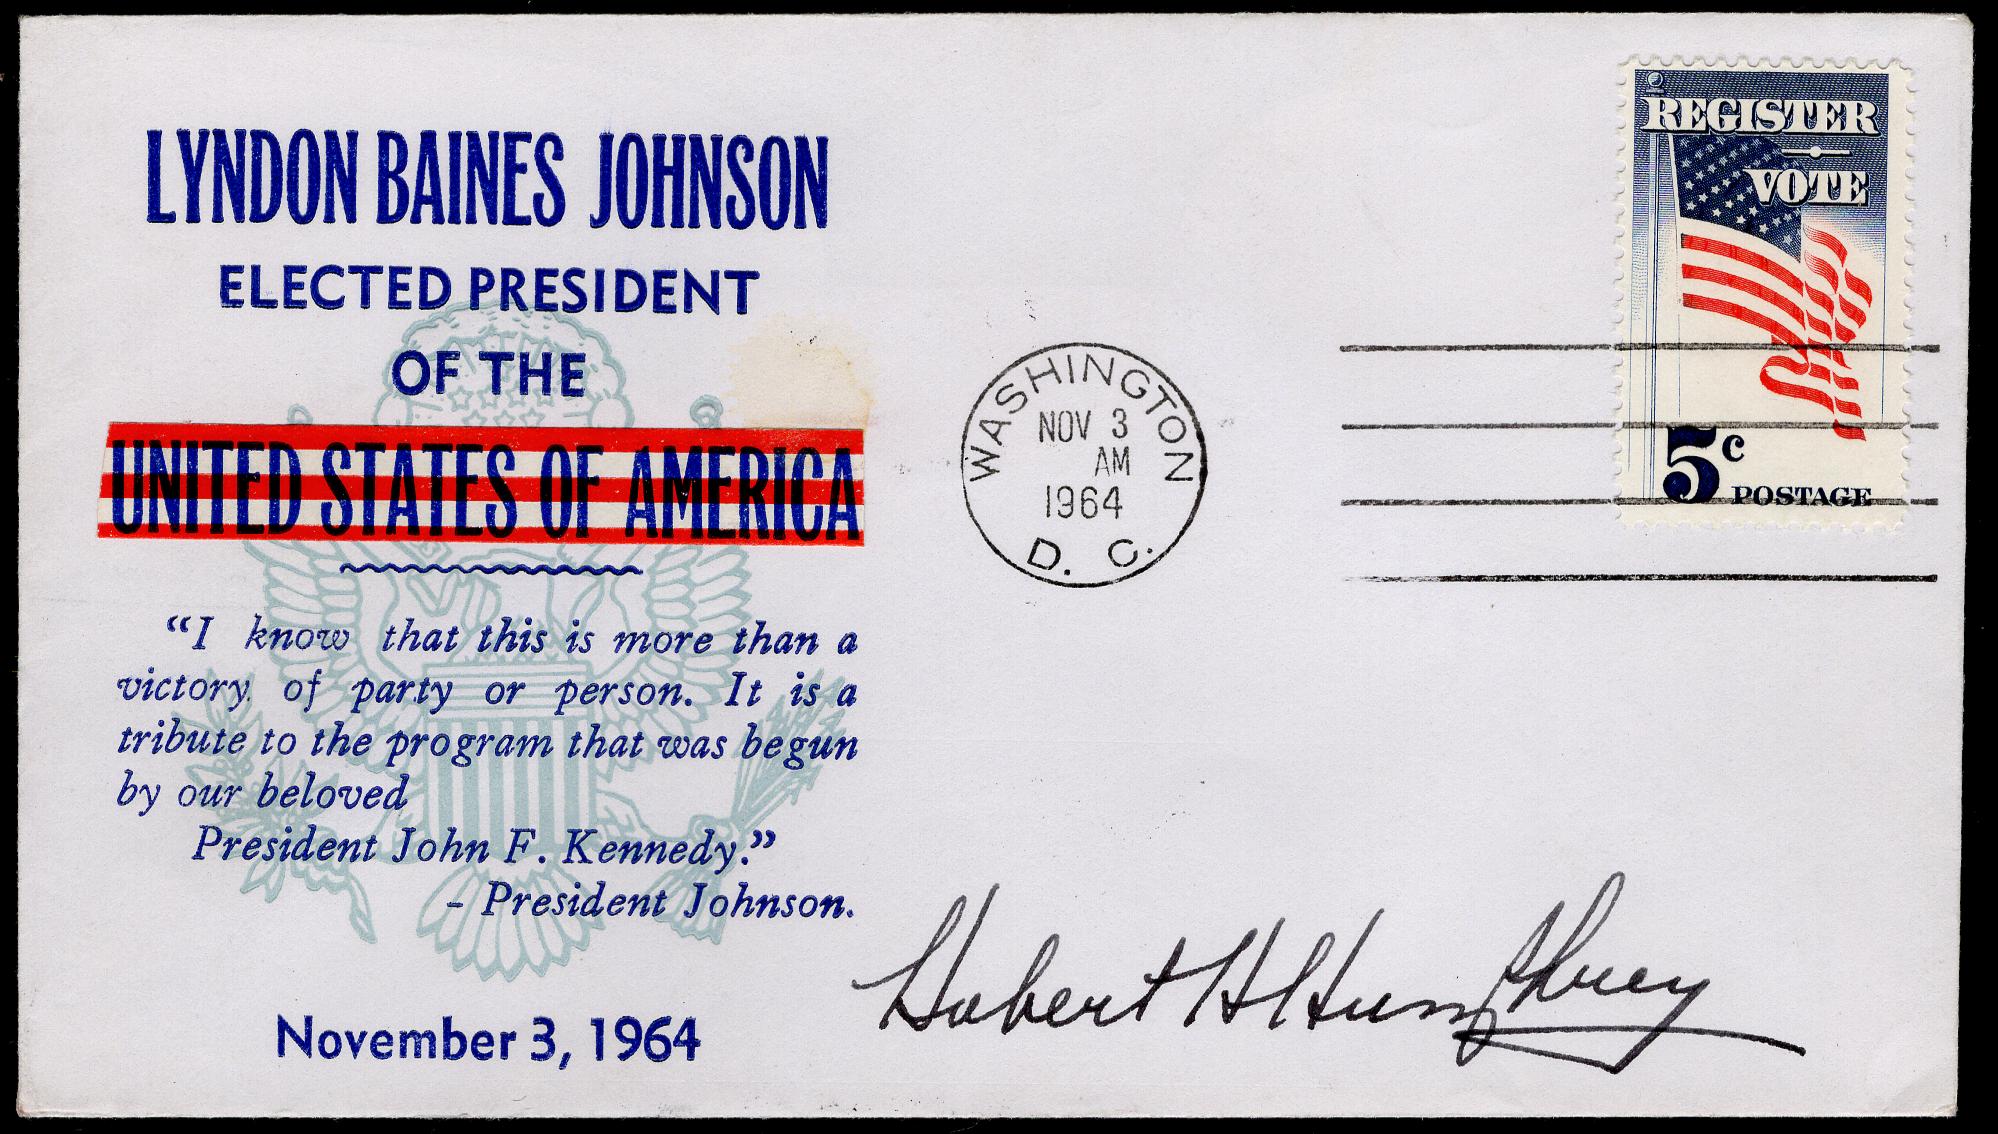 LYNDON BAINES JOHNSON
ELECTED PRESIDENT
OF THE
UNITED STATES OF AMERICA
“I know that this is more than a
victory of party or person. It is a
tribute to the program that was begun
by our beloved
President John F. Kennedy.”
- President Johnson.
November 3, 1964
WASHINGTON
NOV 3
AM
1964
D. C.
REGISTER
VOTE
5c POSTAGE
Hubert H Humphrey